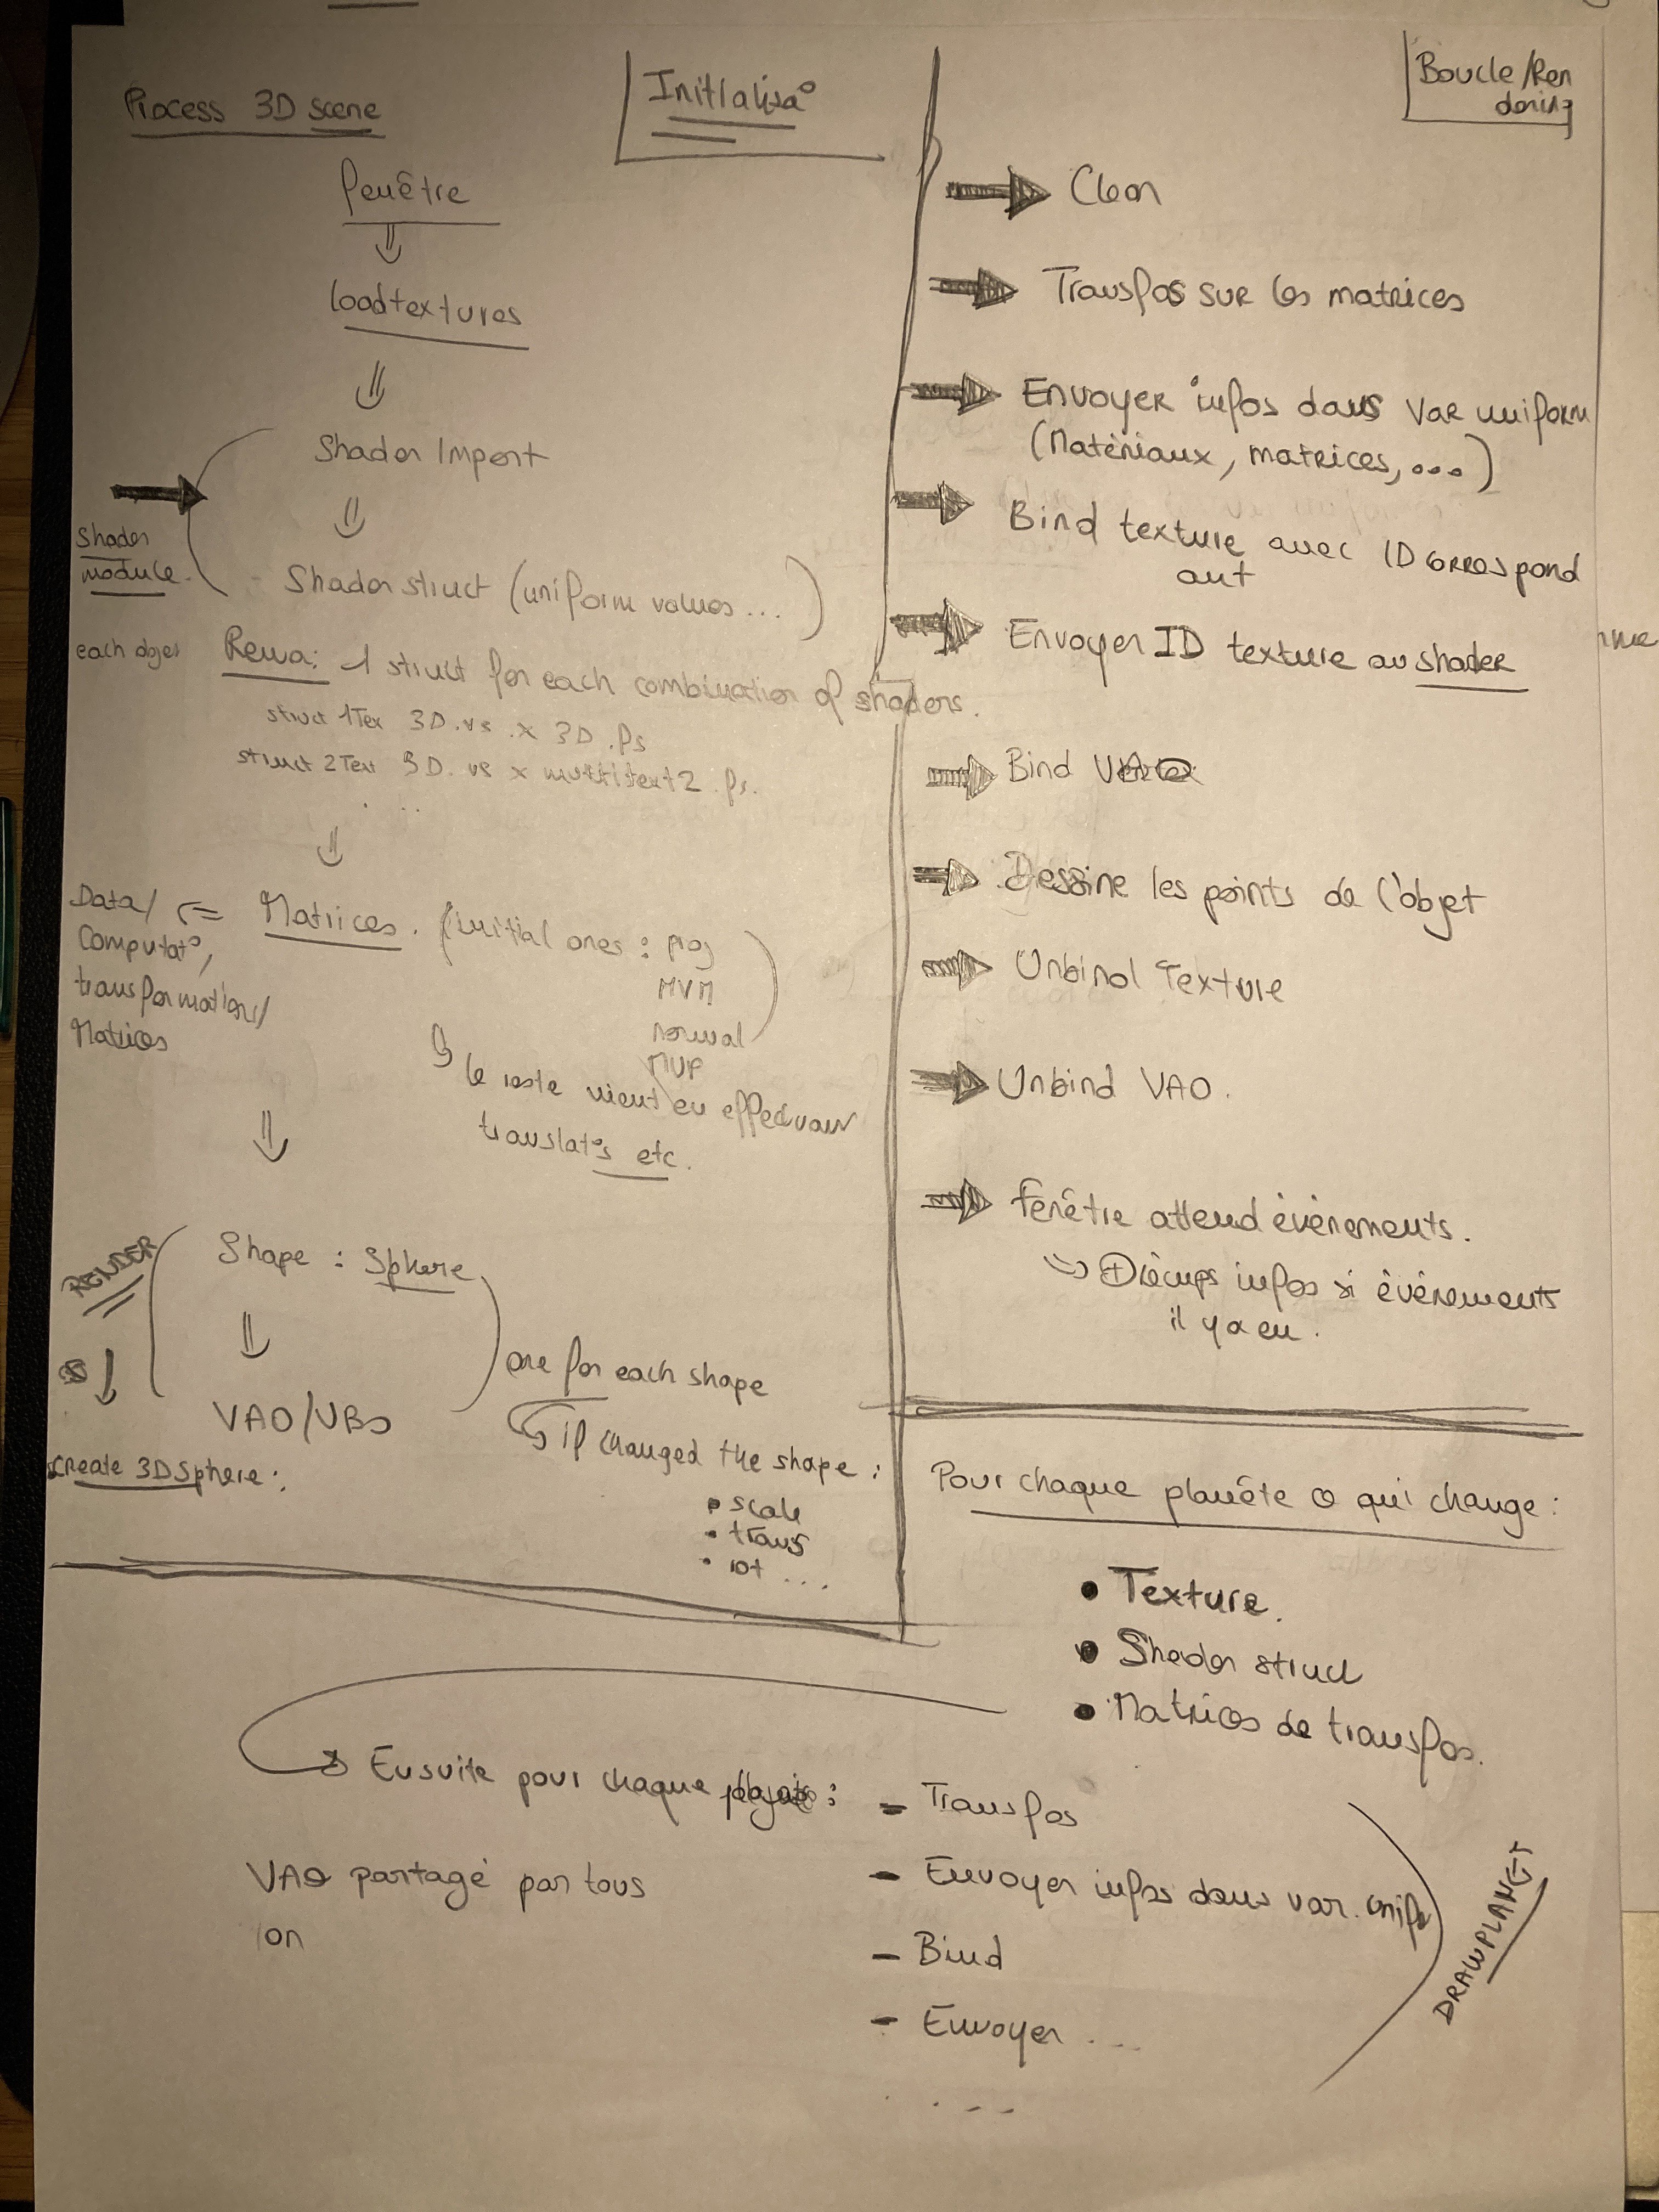 Process 3D scene
Initialisa°
fenêtre
loadtextures
Shader Import
Shader module.
Shader struct (uniform values ...)
each objet
Rema: 1 struct for each combination of shaders.
struct 1Tex 3D.vs x 3D.fs
struct 2Text 3D.vs x multitext2.fs.
. ...
Data/
Computat°,
transformations/
Matrices
Matrices. (initial ones : proj
MVM
normal
MVP
le reste vient en effectuant
translat°s etc.
RENDER
Shape : Sphere
VAO/VBO
one for each shape
if changed the shape :
• scale
• trans
• rot ...
create 3DSphere :
Boucle/Ren
dering
Clean
Transfos sur les matrices
Envoyer infos dans var uniform
(Matériaux, matrices, ...)
Bind texture avec ID correspond
ant
Envoyer ID texture au shader
Bind
Dessine les points de l'objet
Unbind Texture
Unbind VAO.
Fenêtre attend évènements.
infos si évènements
il y a eu.
Pour chaque planète qui change :
• Texture.
• Shader struct
• Matrices de transfos.
Ensuite pour chaque :
VAO partagé par tous
on
- Transfos
- Envoyer infos dans var. unif
- Bind
- Envoyer ...
. - - -
DRAWPLANET